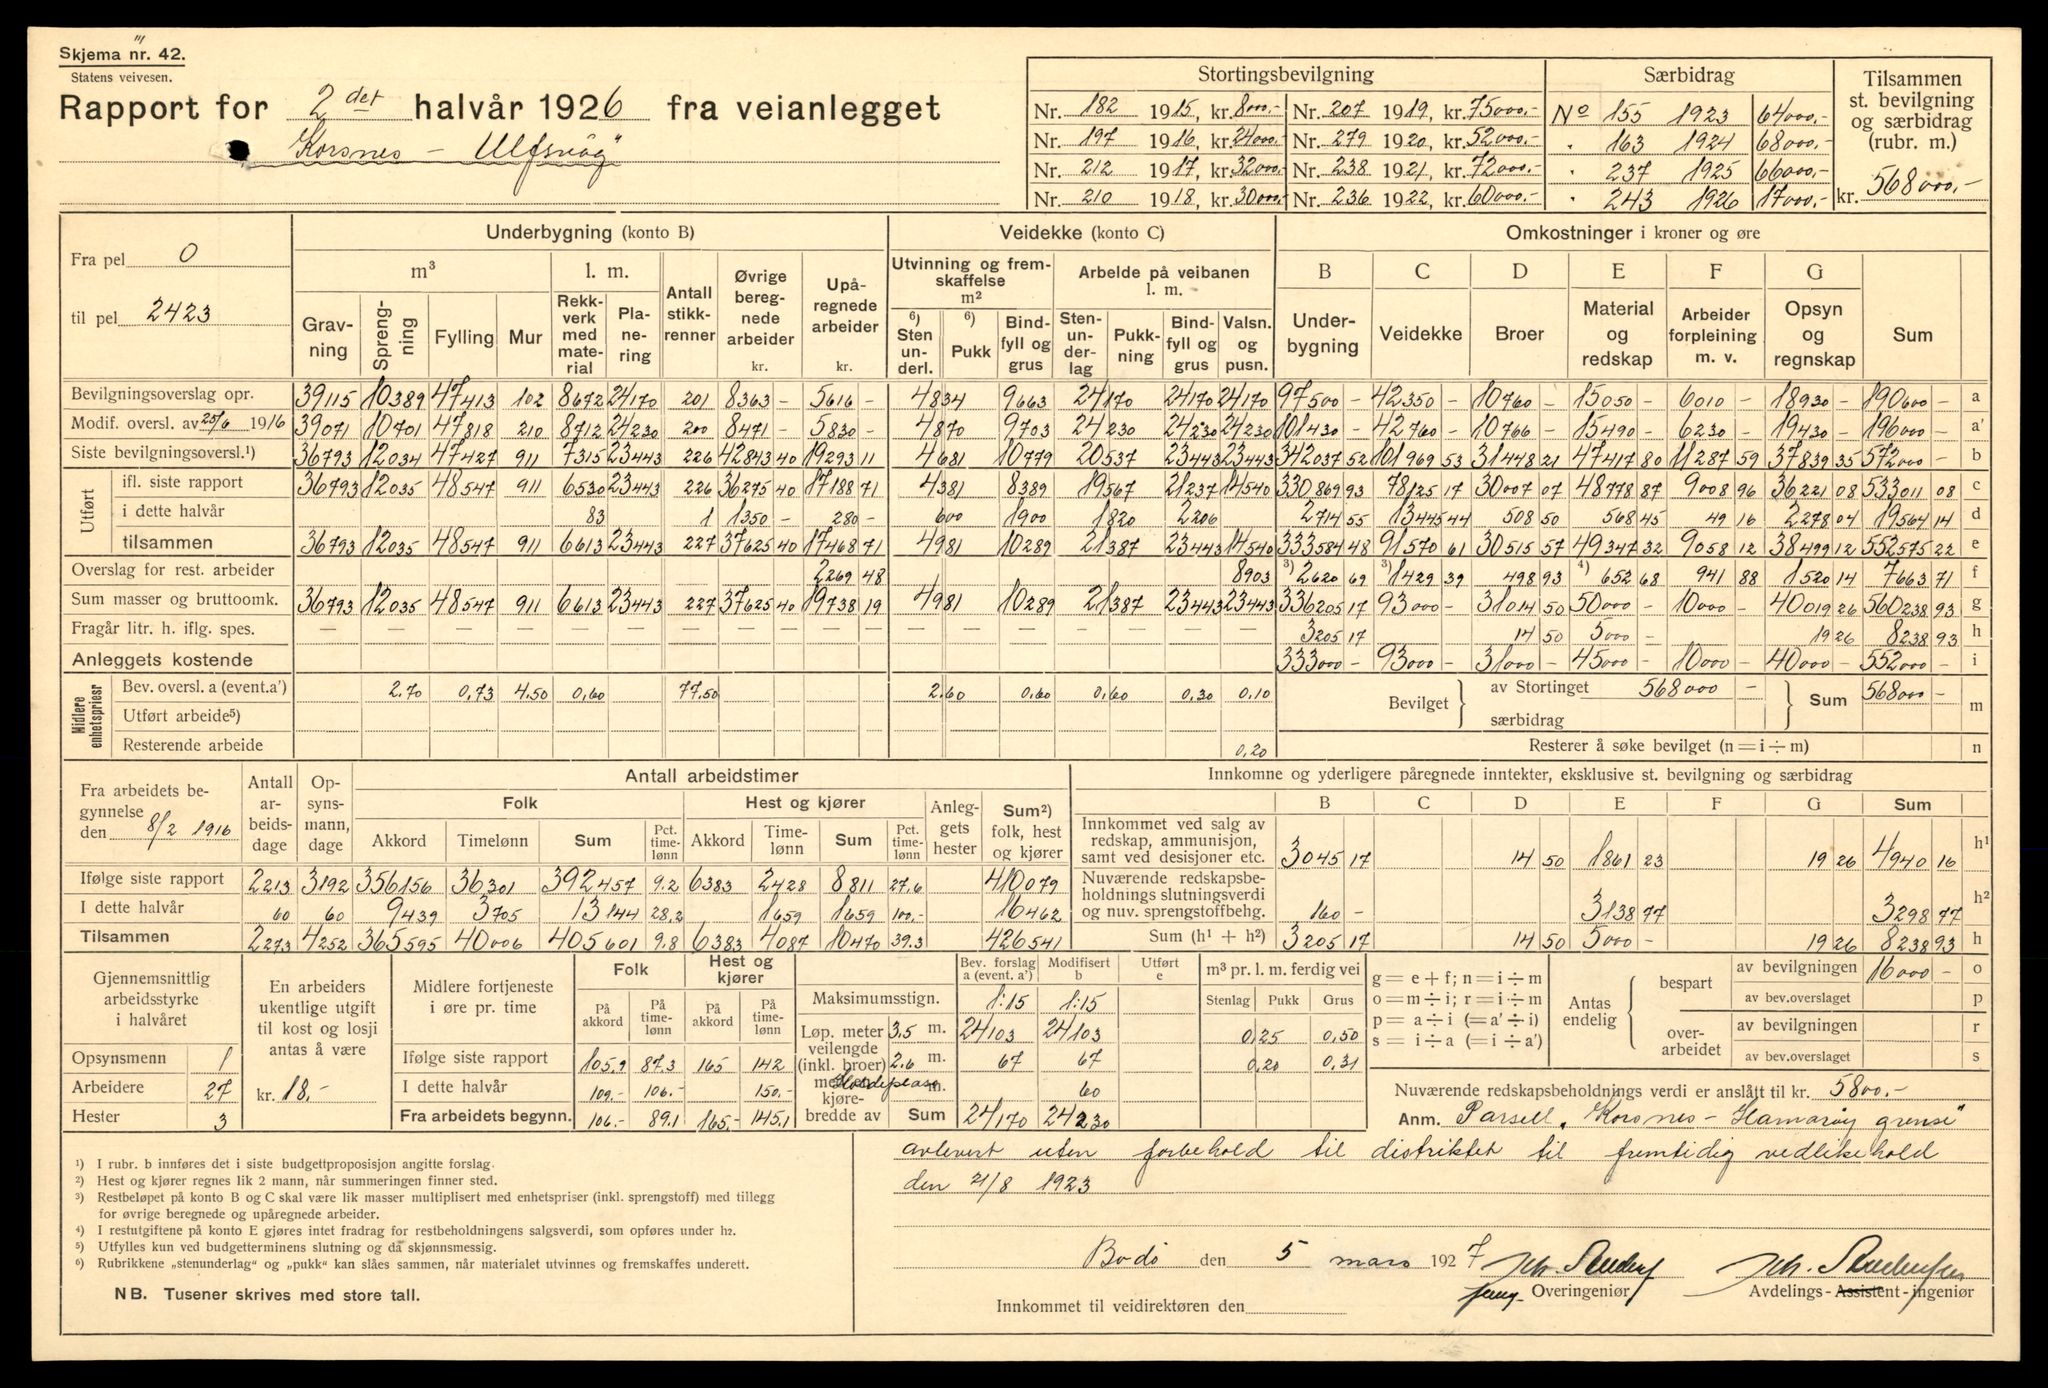 Skjema nr. 42.
Statens veivesen.
Rapport for 2det halvår 1926 fra veianlegget
"Korsnes - Ulfsvåg"
Stortingsbevilgning
Nr. 182 1915, kr. 8000.- Nr. 207 1919, kr. 75000.-
Nr. 197 1916, kr. 24000.- Nr. 279 1920, kr. 52000.-
Nr. 212 1917, kr. 32000.- Nr. 238 1921, kr. 72000.-
Nr. 210 1918, kr. 30000.- Nr. 236 1922, kr. 60000.-
Særbidrag
No 155 1923 64000.-
" 163 1924 68000.-
" 237 1925 66000.-
" 243 1926 17000.-
Tilsammen
st. bevilgning
og særbidrag
(rubr. m.)
kr. 568000.-
Fra pel 0
til pel 2423
Underbygning (konto B) Veidekke (konto C) Omkostninger i kroner og øre
m³ l. m. Antall stikkrenner Øvrige beregnede arbeider kr. Upåregnede arbeider kr. Utvinning og fremskaffelse m² Arbeide på veibanen l. m. B C D E F G
Gravning Sprengning Fylling Mur Rekkverk med material Planering 6) Sten underl. 6) Pukk Bindfyll og grus Stenunderlag Pukkning Bindfyll og grus Valsn. og pusn. Underbygning Veidekke Broer Material og redskap Arbeider forpleining m. v. Opsyn og regnskap Sum
Bevilgningsoverslag opr. 39115 10389 47413 102 8672 24170 201 8363 - 5616 - 4834 9663 24170 24170 24170 97500 - 42350 - 10760 - 15050 - 6010 - 18930 - 190600 - a
Modif. oversl. av 25/6 1916 39071 10701 47818 210 8712 24230 200 8471 - 5830 - 4870 9703 24230 24230 24230 101430 - 42760 - 10766 - 15490 - 6230 - 19430 - 196000 - a'
Siste bevilgningsoversl.¹) 36793 12034 47427 911 7315 23443 226 42843 40 19293 11 4681 10779 20537 23443 23443 342037 52 101969 53 31448 21 47417 80 11287 59 37839 35 572000 - b
Utført ifl. siste rapport 36793 12035 48547 911 6530 23443 226 36275 40 17188 71 4381 8389 19567 21237 14540 330869 93 78125 17 30007 07 48778 87 9008 96 36221 08 533011 08 c
i dette halvår 83 1 1350 - 280 - 600 1900 1820 2206 2714 55 13445 44 508 50 568 45 49 16 2278 04 19564 14 d
tilsammen 36793 12035 48547 911 6613 23443 227 37625 40 17468 71 4981 10289 21387 23443 14540 333584 48 91570 61 30515 57 49347 32 9058 12 38499 12 552575 22 e
Overslag for rest. arbeider 2269 48 8903 ³) 2620 69 ³) 1429 39 498 93 ⁴) 652 68 941 88 1520 14 7663 71 f
Sum masser og bruttoomk. 36793 12035 48547 911 6613 23443 227 37625 40 19738 19 4981 10289 21387 23443 23443 336205 17 93000 - 31014 50 50000 - 10000 - 40019 26 560238 93 g
Fragår litr. h. iflg. spes. — — — — — — — — — — — — — — 3205 17 14 50 5000 - 19 26 8238 93 h
Anleggets kostende 333000 - 93000 - 31000 - 45000 - 10000 - 40000 - 552000 - i
Midlere enhetspriesr
Bev. oversl. a (event. a') 2.70 0,73 4.50 0,60 77.50 2.60 0,60 0,60 0,30 0,10
Utført arbeide⁵)
Resterende arbeide 0,20
Bevilget av Stortinget 568000 - Sum 568000 - m
særbidrag
Resterer å søke bevilget (n = i ÷ m) n
Fra arbeidets begynnelse den 8/2 1916
Antall arbeidsdage Opsynsmann, dage Antall arbeidstimer
Folk Hest og kjører Anleggets hester Sum²) folk, hest og kjører
Akkord Timelønn Sum Pct. timelønn Akkord Timelønn Sum Pct. timelønn
Ifølge siste rapport 2213 3192 356156 36301 392457 9.2 6383 2428 8811 27.6 410079
I dette halvår 60 60 9439 3705 13144 28.2 1659 1659 100.- 16462
Tilsammen 2273 4252 365595 40006 405601 9.8 6383 4087 10470 39.3 426541
Innkomne og yderligere påregnede inntekter, eksklusive st. bevilgning og særbidrag
B C D E F G Sum
Innkommet ved salg av
redskap, ammunisjon,
samt ved desisjoner etc. 3045 17 14 50 1861 23 19 26 4940 16 h¹
Nuværende redskapsbe-
holdnings slutningsverdi
og nuv. sprengstoffbehg. 160 - 3138 77 3298 77 h²
Sum (h¹ + h²) 3205 17 14 50 5000 - 19 26 8238 93 h
Gjennemsnittlig
arbeidsstyrke
i halvåret
Opsynsmenn 1
Arbeidere 27
Hester 3
En arbeiders
ukentlige utgift
til kost og losji
antas å være
kr. 18.-
Midlere fortjeneste
i øre pr. time
Folk Hest og kjører
På akkord På timelønn På akkord På timelønn
Ifølge siste rapport 105.9 87.3 165 142
I dette halvår 109.- 106.- 150.-
Fra arbeidets begynn. 106.- 89.1 165.- 145.1
Bev. forslag a (event. a') Modifisert b Utført e
Maksimumsstign. 1:15 1:15
Løp. meter veilengde (inkl. broer) med en kjørebredde av
3,5 m. 24103 24103
2.6 m. 67 67
Mødeplass m. 60
Sum 24170 24230
m³ pr. l. m. ferdig vei
Stenlag Pukk Grus
0,25 0,50
0,20 0,31
g = e + f; n = i ÷ m
o = m ÷ i; r = i ÷ m
p = a ÷ i (= a' ÷ i)
s = i ÷ a (= i ÷ a')
Antas endelig
bespart av bevilgningen 16000 - o
av bev.overslaget p
overarbeidet av bevilgningen r
av bev.overslaget s
Nuværende redskapsbeholdnings verdi er anslått til kr. 5800.-
Anm. Parsell "Korsnes - Hamarøy grense"
avlevert uten forbehold til distriktet til fremtidig vedlikehold
den 21/8 1923
¹) I rubr. b innføres det i siste budgettproposisjon angitte forslag.
²) Hest og kjører regnes lik 2 mann, når summeringen finner sted.
³) Restbeløpet på konto B og C skal være lik masser multiplisert med enhetspriser (inkl. sprengstoff) med tillegg
for øvrige beregnede og upåregnede arbeider.
⁴) I restutgiftene på konto E gjøres intet fradrag for restbeholdningens salgsverdi, som opføres under h2.
⁵) Utfylles kun ved budgetterminens slutning og da skjønnsmessig.
⁶) Rubrikkene „stenunderlag" og „pukk" kan slåes sammen, når materialet utvinnes og fremskaffes underett.
NB. Tusener skrives med store tall.
Bodö den 5 mars 1927
fung. Overingeniør Avdelings-Assistent-ingeniør
Innkommet til veidirektøren den